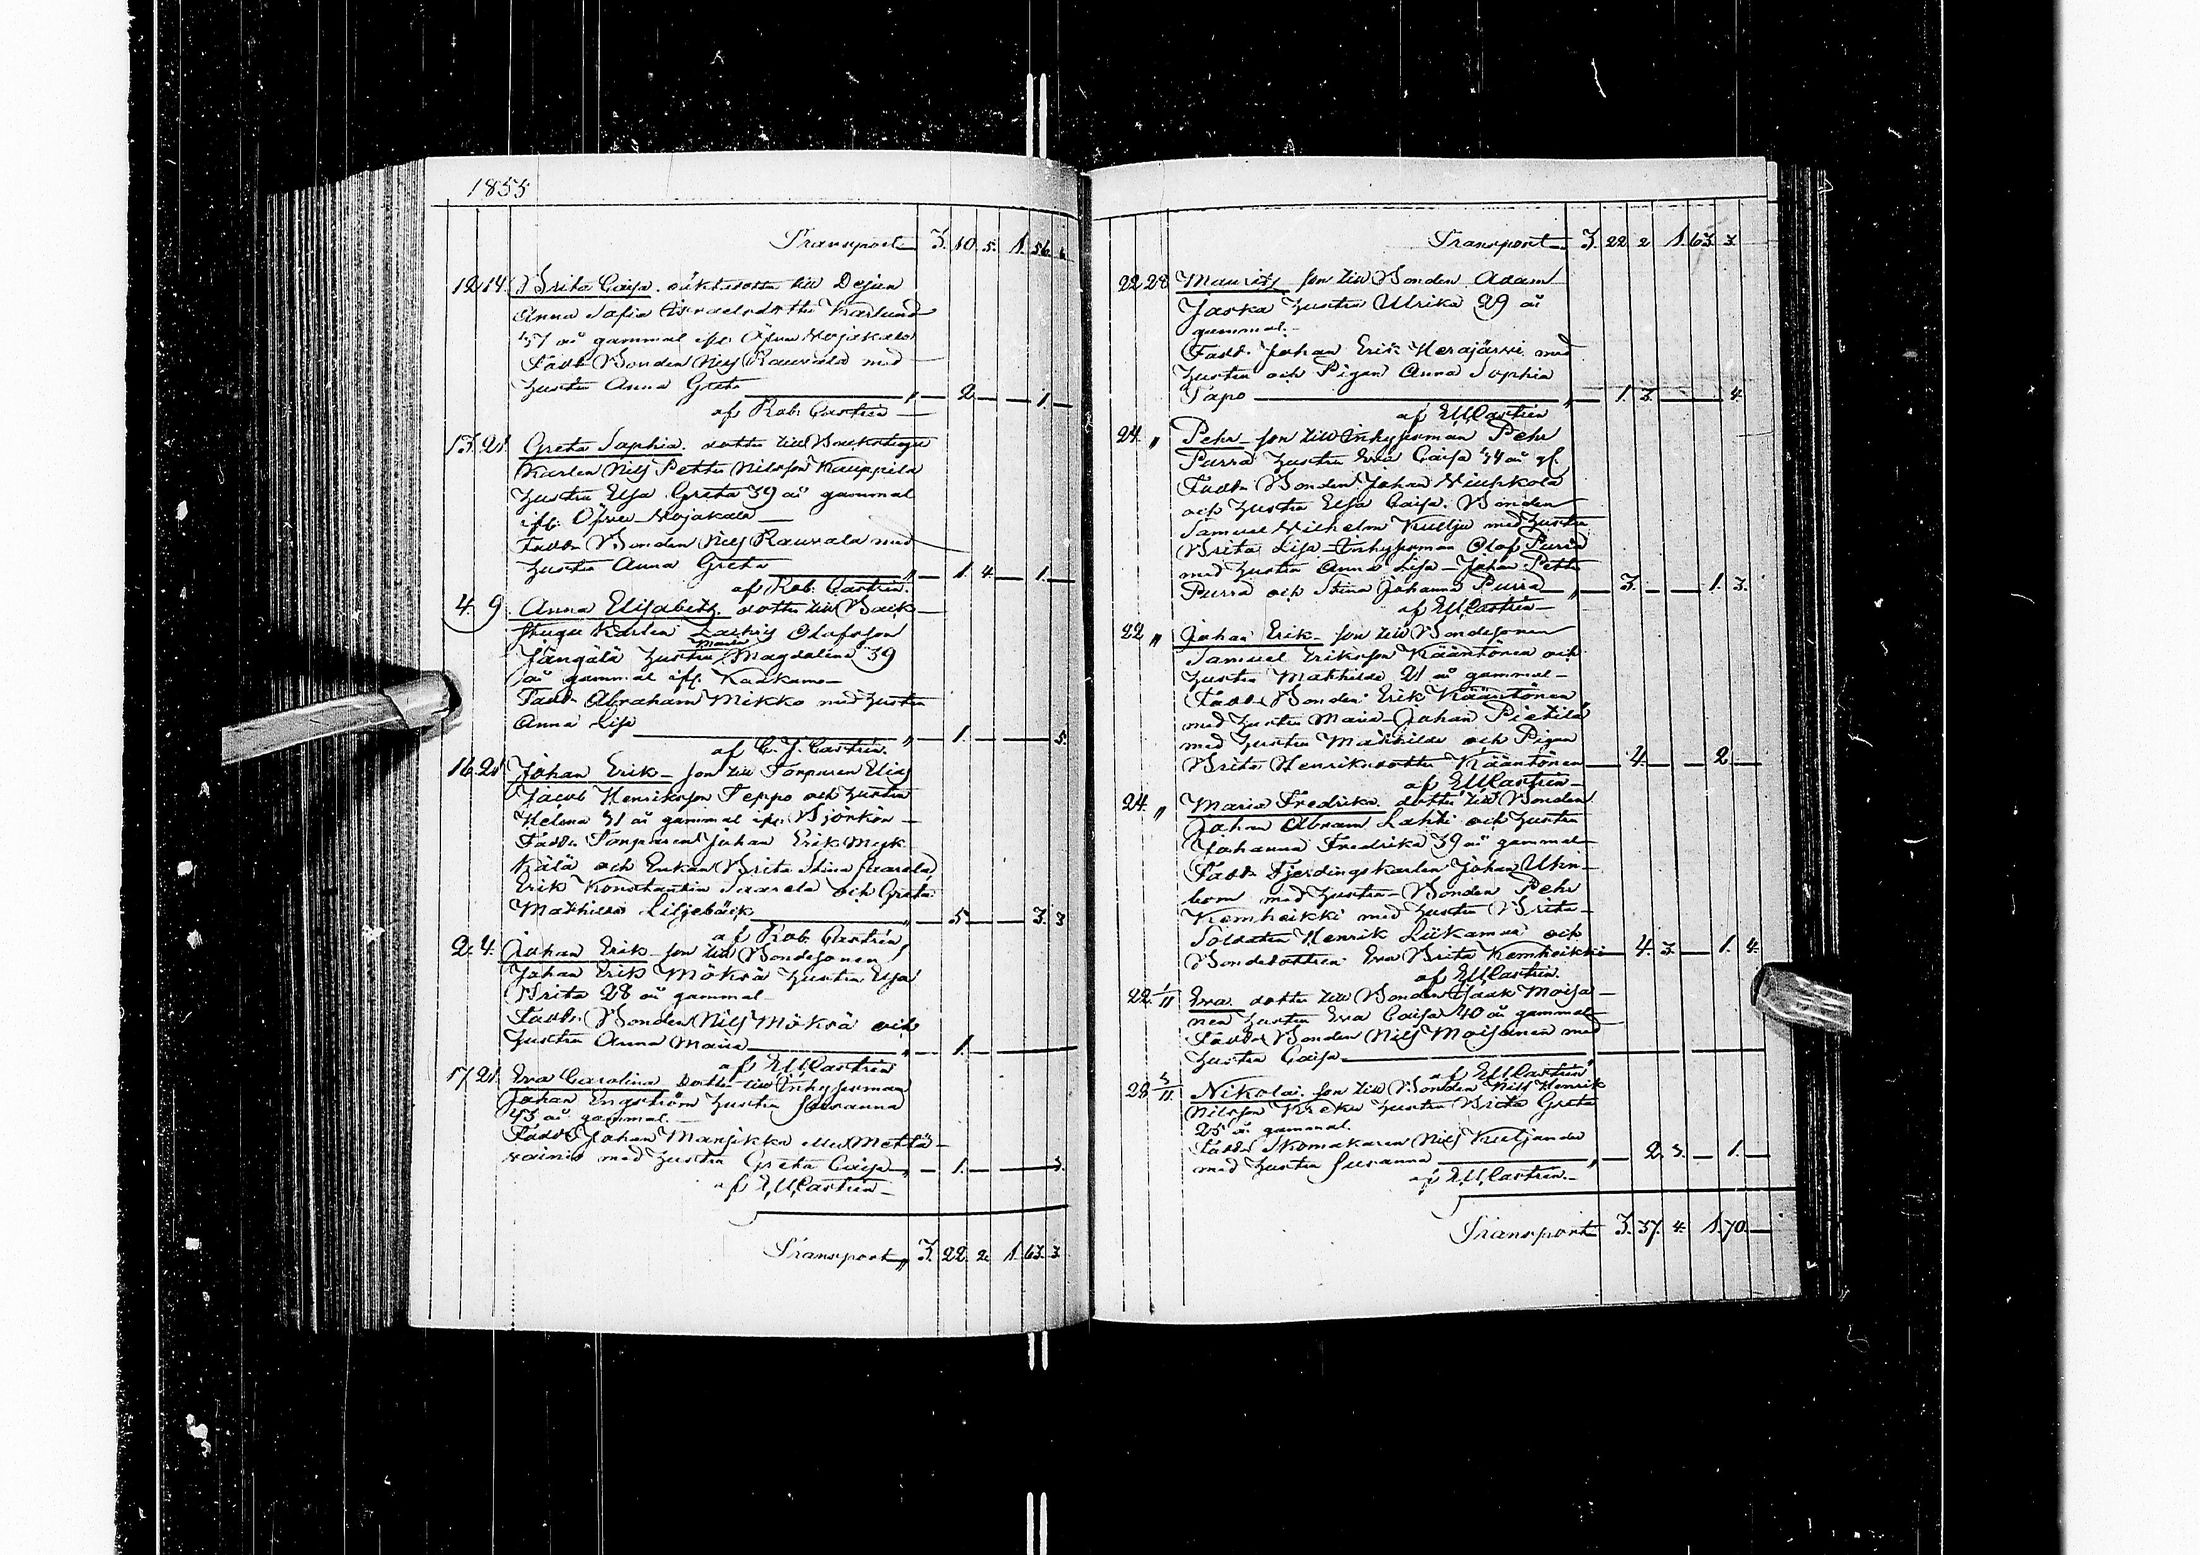 1855
Transport 3. 10. 5. 1. 56.
12 14. Brita Caisa oäkta dotter till Dejan
Anna Sofia Israelsdotter Karlund
37 år gammal ifr. Öfver Vojakala
Fadd. Bonden Nils Rauvala med
hustru Anna Greta 2 1
af Rob. Castrén
13. 21. Greta Sophia dotter till Backstugu
Karlen Nils Petter Nilsson Kauppila
hustru Elsa Greta 39 år gammal
ifr. Öfver Vojakala
Fadd. Bonden Nils Rauvala med
hustru Anna Greta 1. 4. 1.
af Rob. Castrén.
4. 9. Anna Elisabeth dotter till Back
stugu Karlen Zachris Olofsson
Maria
Jängälä hustru Magdalena 39
år gammal ifr. Kaakamo
Fadd. Abraham Mikko med hustru
Anna Lisa 1. 5.
af C. J. Castrén.
16. 21. Johan Erik son till Torparen Elias
Jacob Henriksson Teppo och hustru
Helena 31 år gammal ifr. Björkön
Fadd. Torparen Johan Erik Myk
kälä och Enkan Brita Stina Saarela
Erik Konstantin Saarela och Greta
Mathilda Liljebäck 5 3. 3
af Rob. Castrén
2. 4. Johan Erik son till Bondesonen
Johan Erik Mökrä hustru Elsa
Brita 28 år gammal
Fadd. Bonden Nils Mökrä och
hustru Anna Maria 1.
af E.U. Castrén
17 21. Eva Carolina Dotter till Inhysesman
Johan Engström hustru Susanna
43 år gammal.
Fadd. Johan Mansikka Mettä
vainio med hustru Greta Caisa 1. 3.
af E.U. Castrén
Transport 3. 22. 2. 1. 63. 3.
Transport 3. 22. 2 1. 63. 3.
22 28 Mauritz son till Bonden Adam
Jaska hustru Ulrika 29 år
gammal.
Fadd. Johan Erik Herajärvi med
hustru och Pigan Anna Sophia
Tapo 1. 3. 4.
af E.U. Castrén
24. " Pehr son till Inhysesman Pehr
Purra hustru Eva Caisa 34 år gl.
Fadd. Bonden Johan Niupkola
och hustru Elsa Caisa. Bonden
Samuel Vilhelm Kultju med hustru
Brita Lisa Inhysesman Olof Purra
med hustru Anna Lisa Johan Petter
Purra och Stina Johanna Purra 3. 1. 3.
af E.U. Castrén
22 " Johan Erik son till Bondesonen
Samuel Eriksson Kääntönen och
hustru Mathilda 21 år gammal
Fadd. Bonden Erik Kääntönen
med hustru Maria Johan Pietilä
med hustru Mathilda och Pigan
Brita Henriksdotter Kääntönen 4. 2
af E.U. Castrén
24. " Maria Fredrika dotter till Bonden
Johan Abram Lahti och hustru
Johanna Fredrika 39 år gammal
Fadd. Fjerdingskarlen Johan Ukn
bom med hustru Bonden Pehr
Kemheikki med hustru Brita
Soldaten Henrik Liikamaa och
Bondedottren Eva Brita Kemheikki 4. 3. 1. 4.
af E.U. Castrén.
22. 1/11 Eva dotter till Bonden Isaak Moisa
nen hustru Eva Caisa 40 år gammal
Fadd. Bonden Nils Moisanen med
hustru Caisa
af E.U. Castrén
28 3/11. Nikolai son till Bonden Nils Henrik
Nilsson Kreku hustru Brita Greta
25 år gammal.
Fadd. Skomakaren Nils Kultjander
med hustru Susanna 2. 3. 1.
af E.U. Castrén.
Transport 3. 37. 4. 1. 70.